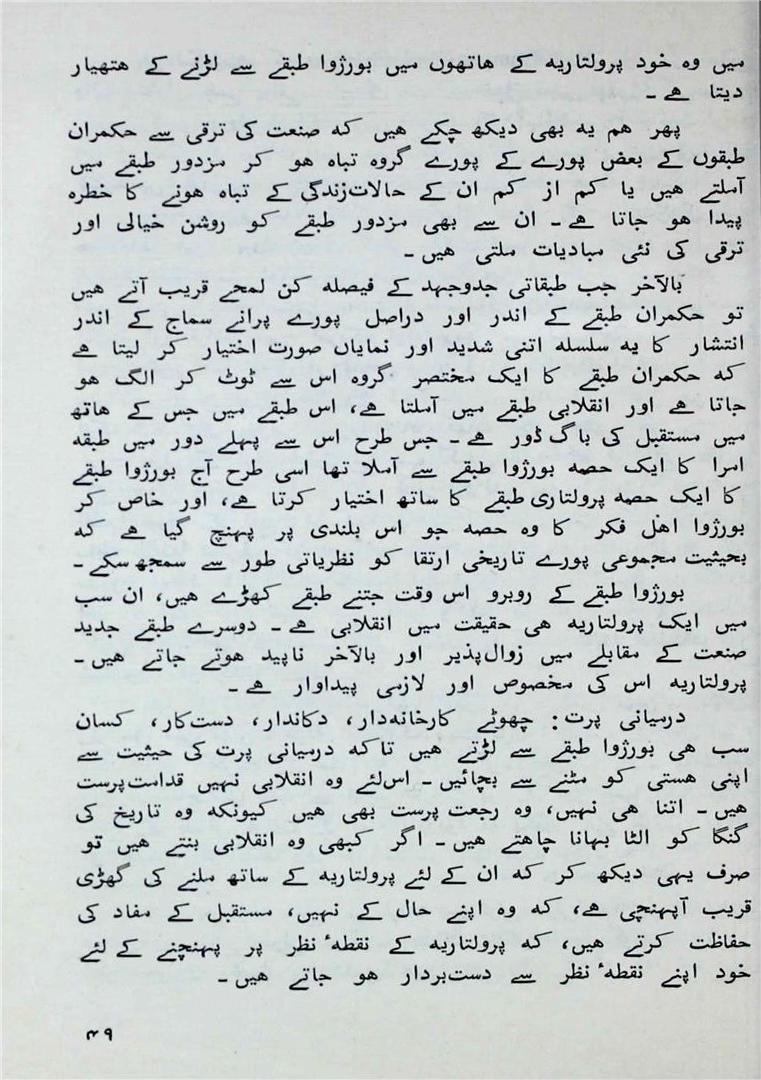 میں وہ خود پرولتاریہ کے ھاتھوں میں بورژوا طبقے سے لڑنے کے ھتھیار
دیتا ھے۔
پھر ھم یہ بھی دیکھ چکے ھیں کہ صنعت کی ترقی سے حکمران
طبقوں کے بعض پورے کے پورے گروہ تباہ ھو کر مزدور طبقے میں
آملتے ھیں یا کم از کم ان کے حالات‌زندگی کے تباہ ھونے کا خطرہ
پیدا ھو جاتا ھے۔ ان سے بھی مزدور طبقے کو روشن خیالی اور
ترقی کی نئی مبادیات ملتی ھیں۔
بالآخر جب طبقاتی جدوجہد کے فیصلہ کن لمحے قریب آتے ھیں
تو حکمران طبقے کے اندر اور دراصل پورے پرانے سماج کے اندر
انتشار کا یہ سلسلہ اتنی شدید اور نمایاں صورت اختیار کر لیتا ھے
کہ حکمران طبقے کا ایک مختصر گروہ اس سے ٹوٹ کر الگ ھو
جاتا ھے اور انقلابی طبقے میں آملتا ھے، اس طبقے میں جس کے ھاتھ
میں مستقبل کی باگ ڈور ھے۔ جس طرح اس سے پہلے دور میں طبقہ
امرا کا ایک حصہ بورژوا طبقے سے آملا تھا اسی طرح آج بورژوا طبقے
کا ایک حصہ پرولتاری طبقے کا ساتھ اختیار کرتا ھے، اور خاص کر
بورژوا اھل فکر کا وہ حصہ جو اس بلندی پر پہنچ گیا ھے کہ
بحیثیت مجموعی پورے تاریخی ارتقا کو نظریاتی طور سے سمجھ سکے۔
بورژوا طبقے کے روبرو اس وقت جتنے طبقے کھڑے ھیں، ان سب
میں ایک پرولتاریہ ھی حقیقت میں انقلابی ھے۔ دوسرے طبقے جدید
صنعت کے مقابلے میں زوال‌پذیر اور بالآخر ناپید ھوتے جاتے ھیں۔
پرولتاریہ اس کی مخصوص اور لازمی پیداوار ھے۔
درمیانی پرت: چھوٹے کارخانہ‌دار، دکاندار، دست‌کار، کسان
سب ھی بورژوا طبقے سے لڑتے ھیں تاکہ درمیانی پرت کی حیثیت سے
اپنی ھستی کو مٹنے سے بچائیں۔ اس‌لئے وہ انقلابی نہیں قدامت‌پرست
ھیں۔ اتنا ھی نہیں، وہ رجعت پرست بھی ھیں کیونکہ وہ تاریخ کی
گنگا کو الٹا بہانا چاھتے ھیں۔ اگر کبھی وہ انقلابی بنتے ھیں تو
صرف یہی دیکھ کر کہ ان کے لئے پرولتاریہ کے ساتھ ملنے کی گھڑی
قریب آپہنچی ھے، کہ وہ اپنے حال کے نہیں، مستقبل کے مفاد کی
حفاظت کرتے ھیں، کہ پرولتاریہ کے نقطۂ نظر پر پہنچنے کے لئے
خود اپنے نقطۂ نظر سے دست‌بردار ھو جاتے ھیں۔
۴۹